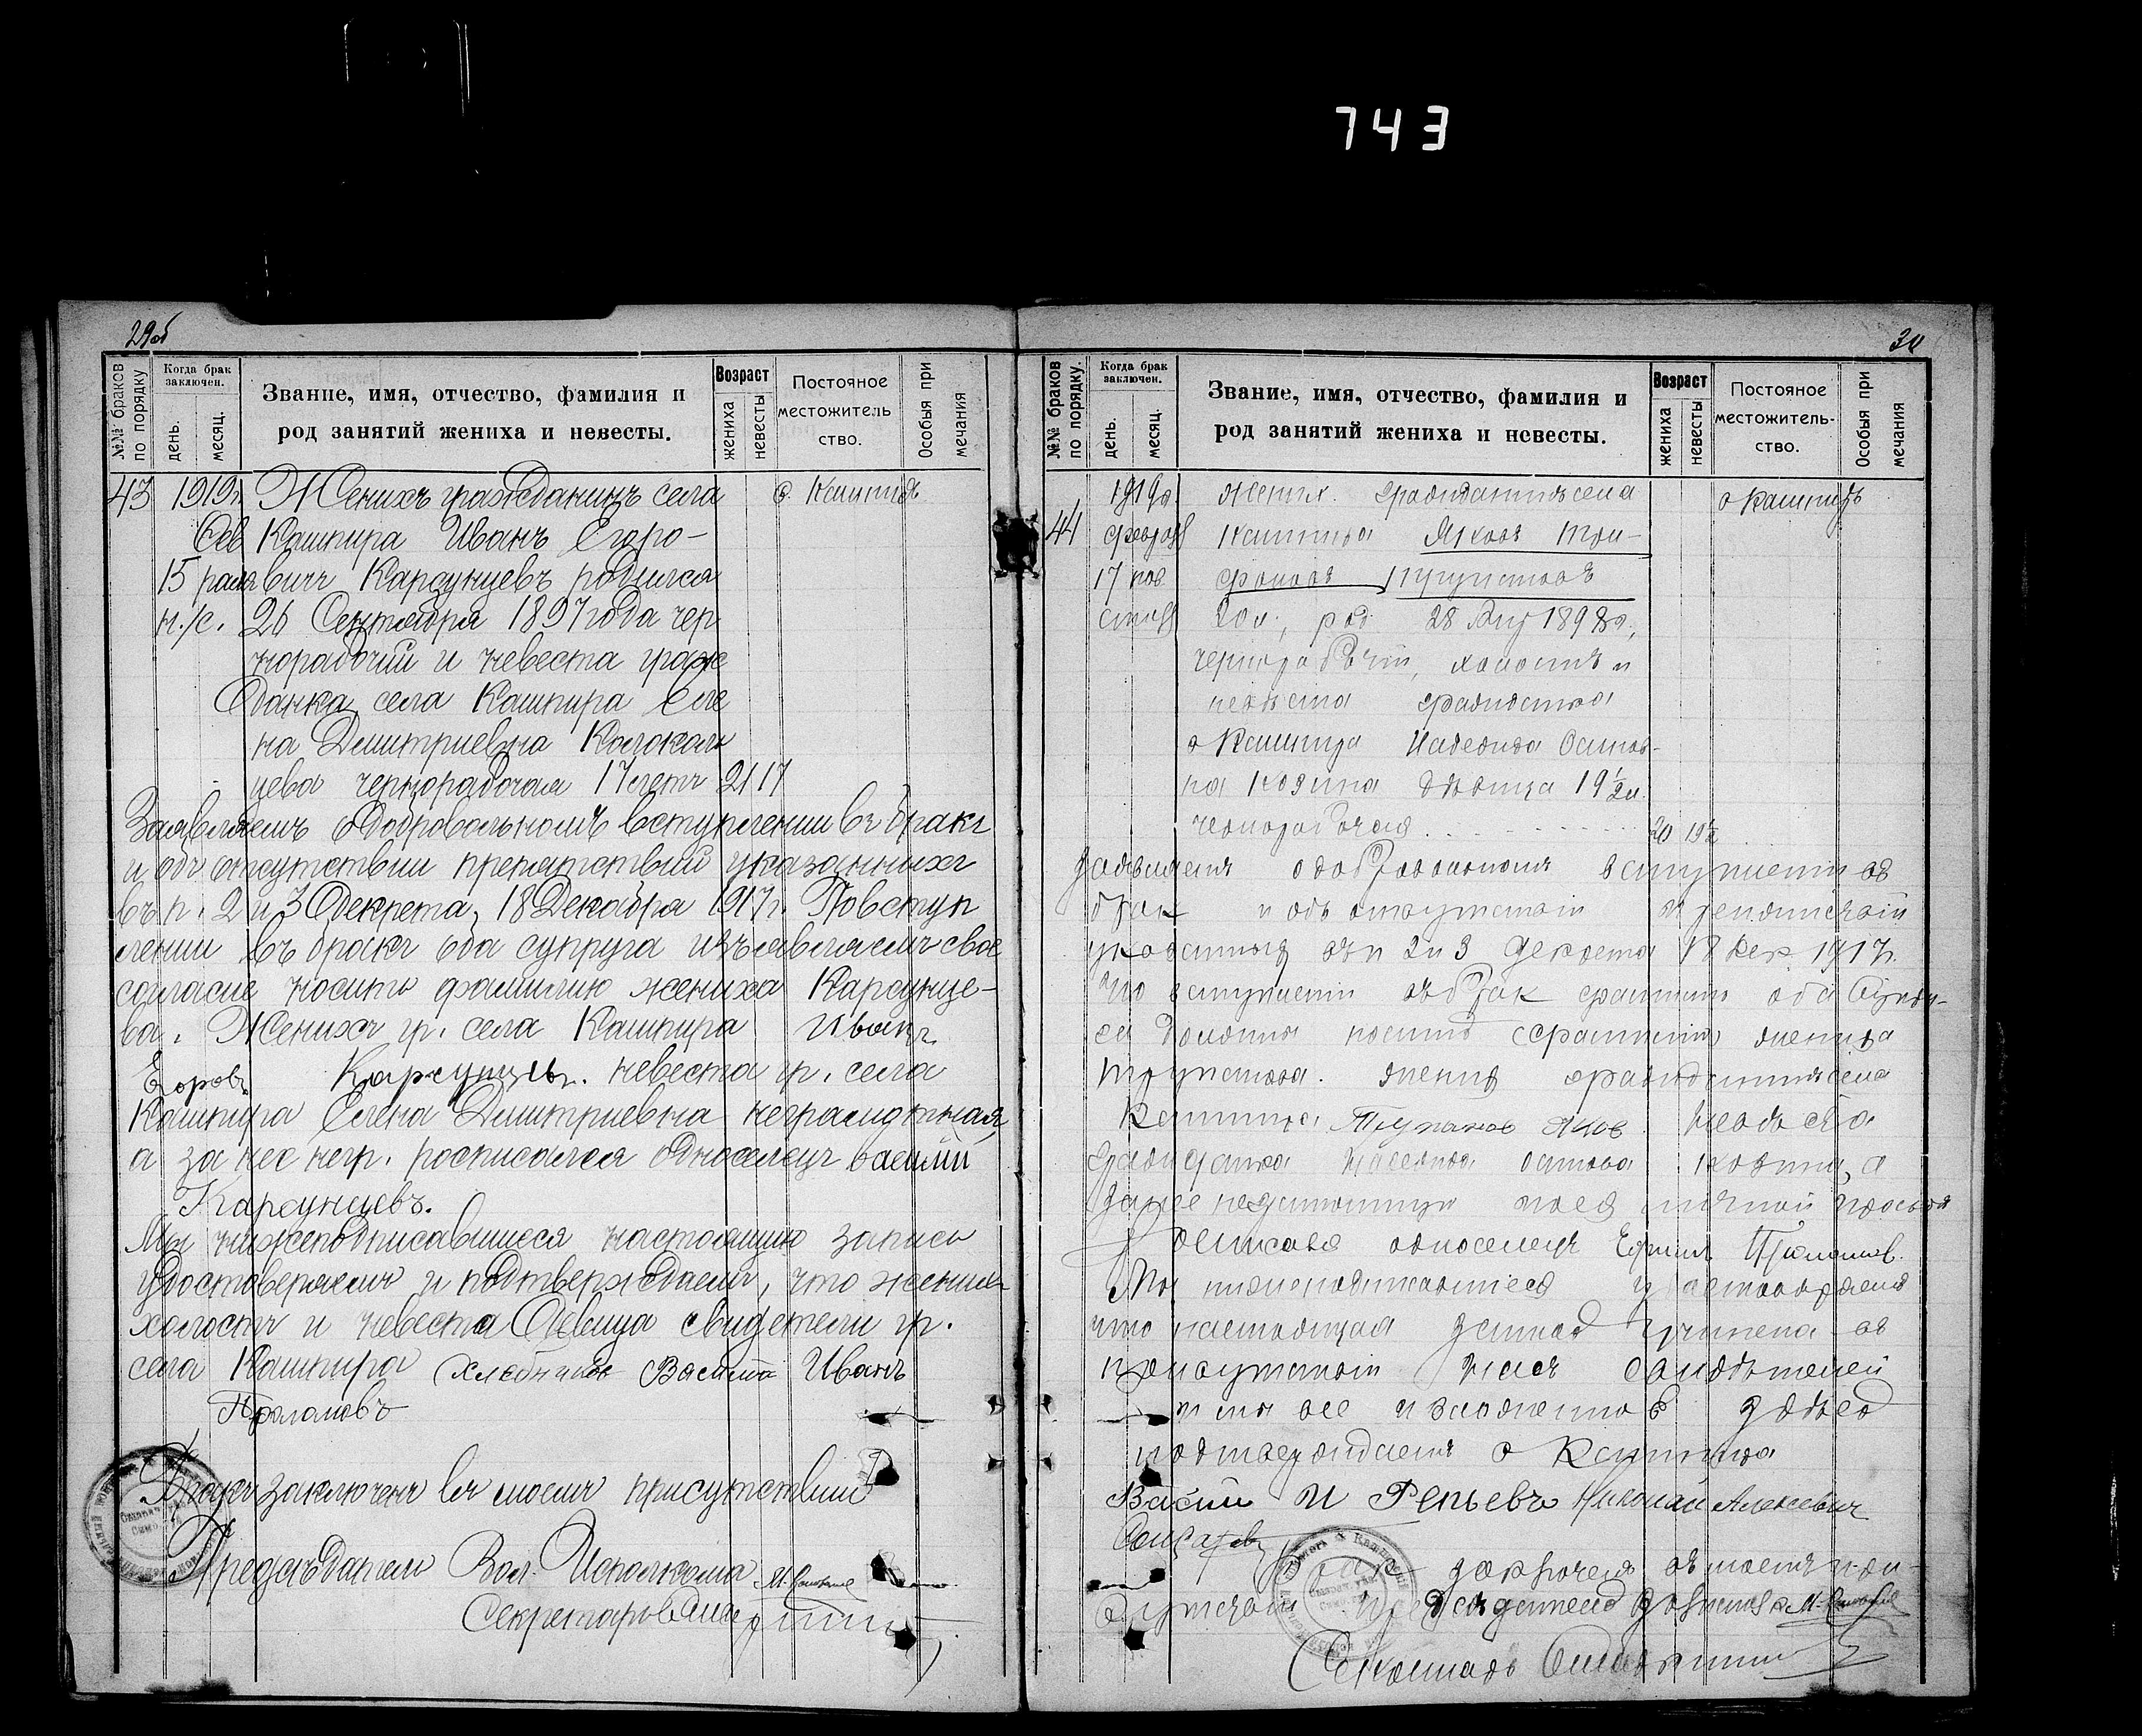 743
29об
№№ браков по порядку
Когда брак заключен.
день.
месяц.
Звание, имя, отчество, фамилия и
род занятий жениха и невесты.
Возраст
жениха
невесты
Постояное
местожитель
ство.
Особыя при
мечания
43 1919г. Женихъ гражданинъ села с. Кашпиръ
Фев Кашпира Иванъ Егоро-
15 вичъ Карсунцевъ родился
н./с. 26 Сентября 1897 года чер
норабочий и невеста граж
данка села Кашпира Еле
на Дмитриевна Колоколь
цева чернорабочая 17 летъ 21 17
Заявляемъ о добровольномъ вступлении въ бракъ
и объ отсутствии препятствий указанныхъ
въ п. 2 и 3 Декрета, 18 Декабря 1917 г. По вступ
лении въ бракъ оба супруга изъявляемъ свое
согласие носить фамилию жениха Карсунце-
ва. Женихъ гр. села Кашпира Иванъ
Егоровъ Карсунцевъ. невеста гр. села
Кашпира Елена Дмитриевна неграмотная,
а за нее негр. росписался односелецъ васили
Карсунцевъ.
Мы нижеподписавшиеся настоящую запись
удостоверяемъ и подтверждаемъ, что женихъ
холостъ и невеста Девица свидетели гр.
села Кашпира Хлебников Василий Иванъ
Проломовъ
Бракъ заключенъ въ моемъ присутствии
Председатель Вол. Исполкома
Секретарь
30
№№ браков по порядку.
Когда брак заключен.
день.
месяц.
Звание, имя, отчество, фамилия и
род занятий жениха и невесты.
Возраст
жениха
невесты
Постояное
местожитель-
ство.
Особыя при
мечания
1919г. жених. гражданинъ села с Кашпиръ
44 феврал Кашпира Яковъ Три-
17 нов фоновъ
стиль 20 л., род 28 1898 г.,
чернорабочий, холостъ и
невеста гражданка
с Кашпира Надежда Осипов-
на Козина девица 19 1/2 л.
чернорабочая 20 19 1/2
Заявляемъ о добровольномъ вступлении въ
брак и объ отсутствии препятствий
указанных въ п 2 и 3 Декрета 18 Дек 1917 г.
По вступлении въ брак фамилию оба Супру-
га должны носить фамилию жениха
жених гражданинъ села
Кашпира Яков. Невеста
гражданка Надежда Осипова Козина, а
за нее неграмотную по ея личной просьбе
росписался односелецъ Ефимъ
Мы нижеподписавшиеся удостоверяемъ
что настоящая запись учинена въ
присутствии насъ свидетелей
и мы все изложенное здесь
подтверждаемъ с Кашпира
Васили И Репьевъ Николай Алексевич
Брак заключенъ въ моемъ при-
сутствии председатель
Секретарь